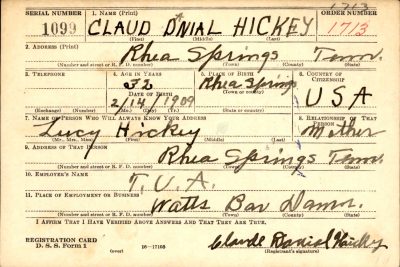 1713
SERIAL NUMBER 1. NAME (Print) ORDER NUMBER
1099 CLAUD DANIAL HICKEY 1713
(First) (Middle) (Last)
2. ADDRESS (Print)
Rhea Springs Tenn.
(Number and street or R. F. D. number) (Town) (County) (State)
3. TELEPHONE 4. AGE IN YEARS 5. PLACE OF BIRTH 6. COUNTRY OF CITIZENSHIP
32 Rhea Springs
DATE OF BIRTH (Town or county)
2/14/1909 USA
(Exchange) (Number) (Mo.) (Day) (Yr.) (State or country)
7. NAME OF PERSON WHO WILL ALWAYS KNOW YOUR ADDRESS 8. RELATIONSHIP OF THAT PERSON
Lucy Hickey Mother
(Mr., Mrs., Miss) (First) (Middle) (Last)
9. ADDRESS OF THAT PERSON
Rhea Springs Tenn.
(Number and street or R. F. D. number) (Town) (County) (State)
10. EMPLOYER'S NAME
T.V.A.
11. PLACE OF EMPLOYMENT OR BUSINESS
Watts Bar Dam
(Number and street or R. F. D. number) (Town) (County) (State)
I AFFIRM THAT I HAVE VERIFIED ABOVE ANSWERS AND THAT THEY ARE TRUE.
REGISTRATION CARD
D. S. S. FORM 1 (over) 16—17105 Claude Danial Hickey
(Registrant's signature)